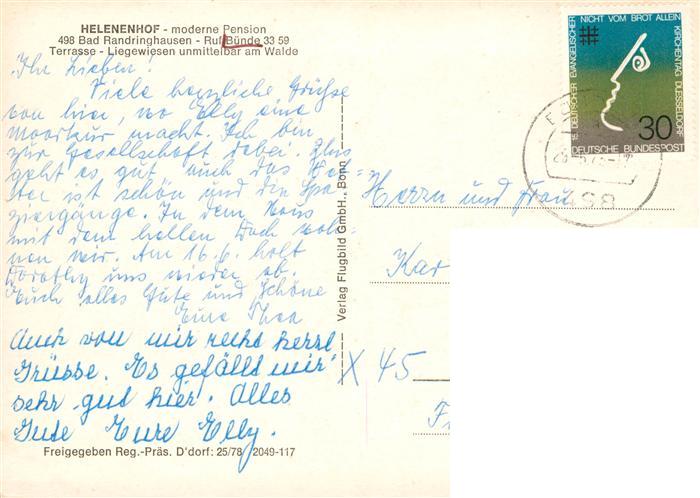 HELENENHOF - moderne Pension
498 Bad Randringhausen - Ruf Bünde 33 59
Terrasse - Liegewiesen unmittelbar am Walde
Ihr Lieben!
Viele herzliche Grüße
von hier, wo Elly eine
Moorkur macht. Ich bin
zur Gesellschaft dabei. Uns
geht es gut, auch das Wet-
ter ist schön und die Spa-
ziergänge. In dem Haus
mit dem hellen Dach woh-
nen wir. Am 16.6. holt
Dorothy uns wieder ab.
Euch alles Gute und Schöne
Eure
Auch von mir recht herzl
Grüsse. Es gefällt mir
sehr gut hier. Alles
Gute Eure Elly.
Freigegeben Reg.-Präs. D'dorf: 25/78 2049-117
Verlag Flugbild GmbH., Bonn
15. DEUTSCHER EVANGELISCHER KIRCHENTAG DUESSELDORF
NICHT VOM BROT ALLEIN
30
DEUTSCHE BUNDESPOST
498
Herrn und Frau
Kar
X 45
F